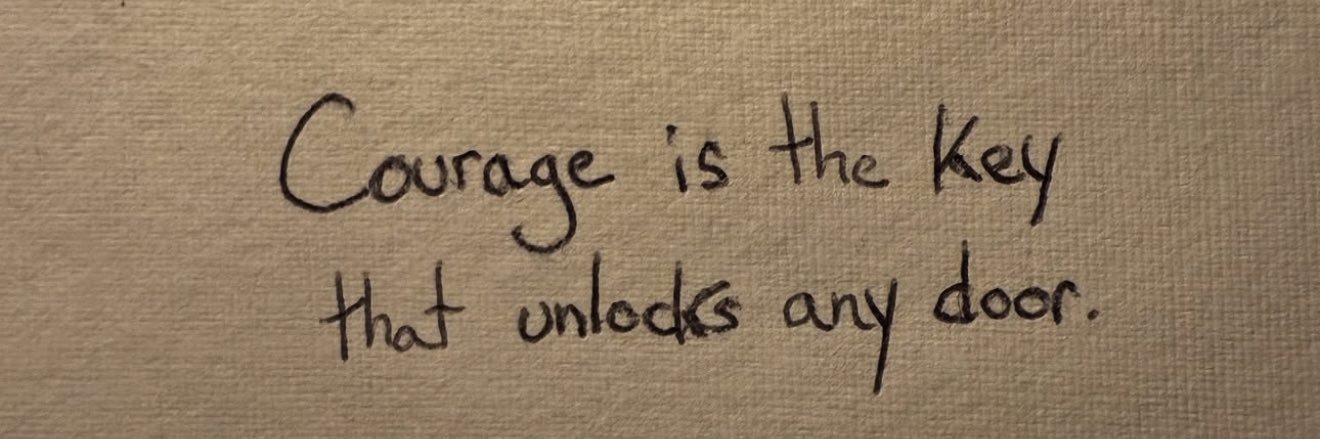 Courage is the Key
that unlocks any door.